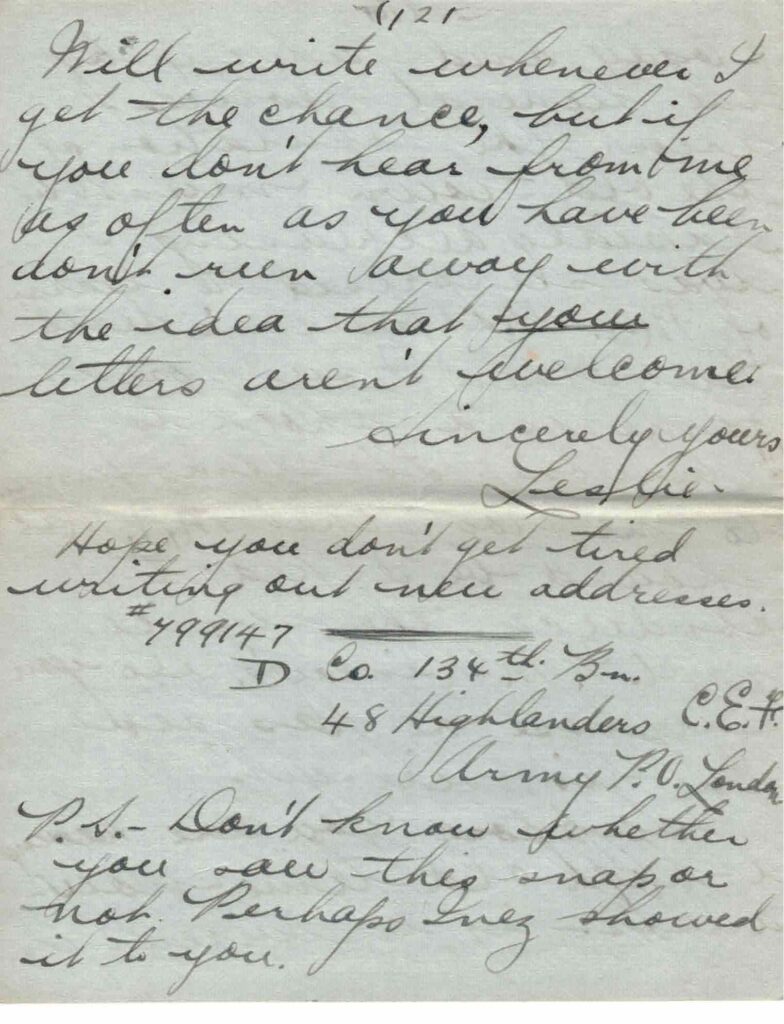 (12)
Will write whenever I
get the chance, but if
you don't hear from me
as often as you have been
don't run away with
the idea that your
letters aren't welcome.
Sincerely yours
Leslie.
Hope you don't get tired
writing out new addresses.
#799147
D Co. 134th. Bn.
48 Highlanders C.E.F.
Army P.O. London
P.S.- Don't know whether
you saw this snap or
not. Perhaps Inez showed
it to you.